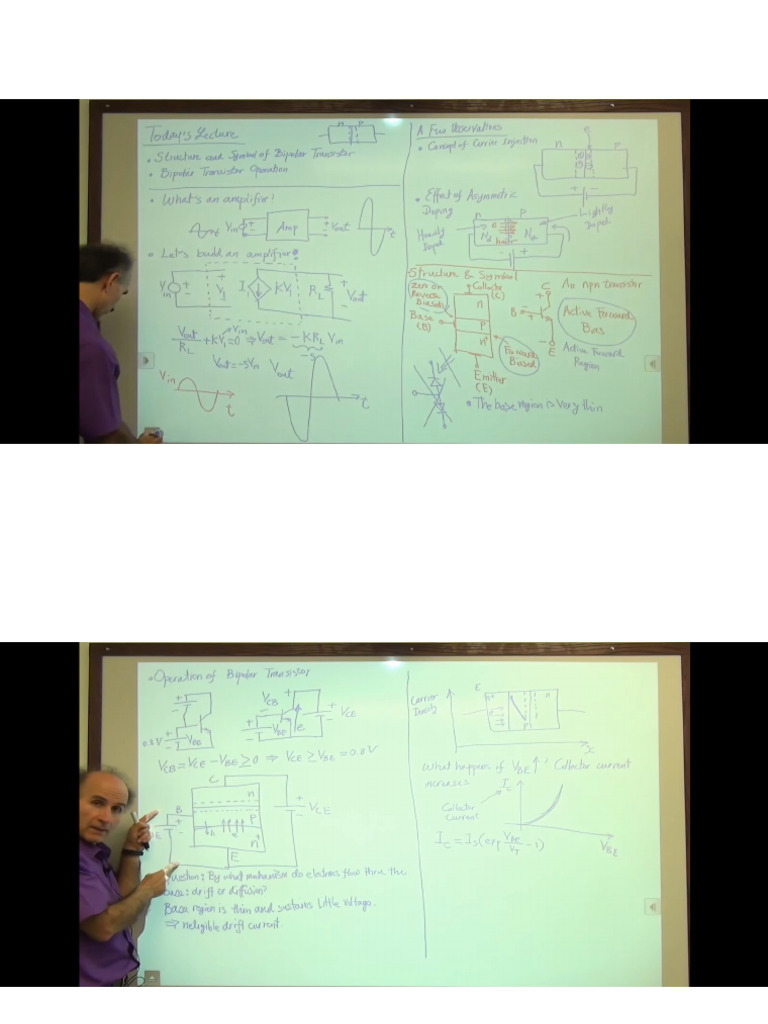 Today's Lecture
n P
• Structure and Symbol of Bipolar Transistor
• Bipolar Transistor Operation
• What's an amplifier?
Vin + − Amp + − Vout t
• Let's build an amplifier:
Vin + − + V1 − I1 KV1 RL + Vout −
Vout/RL + KV1 = 0 ⇒ Vout = −KRL Vin
Vin
−5
Vout = −5Vin
Vin t
Vout t
A Few Observations
• Concept of Carrier Injection
n P
+ −
• Effect of Asymmetric
Doping
n P
Heavily
Doped
Nd Na
Lightly
Doped
− +
Structure & Symbol
Zero or
Reverse
Biased
Collector
(C)
n
P
n+
Base
(B)
Forward
Biased
Emitter
(E)
An npn transistor
C
B
E
Active Forward
Bias
Active Forward
Region
• The base region is very thin
• Operation of Bipolar Transistor
0.8V VBE
VCB VBE VCE
VCB = VCE − VBE ≥ 0 ⇒ VCE ≥ VBE = 0.8V
C
n
B
P
h e
n+
E
VCE
Question: By what mechanism do electrons flow thru the
base: drift or diffusion?
Base region is thin and sustains little voltage.
⇒ negligible drift current
Carrier
Density
E
n+ P n
x
What happens if VBE ↑ ? Collector current
increases
IC
Collector
Current
VBE
IC = IS(exp VBE/VT − 1)